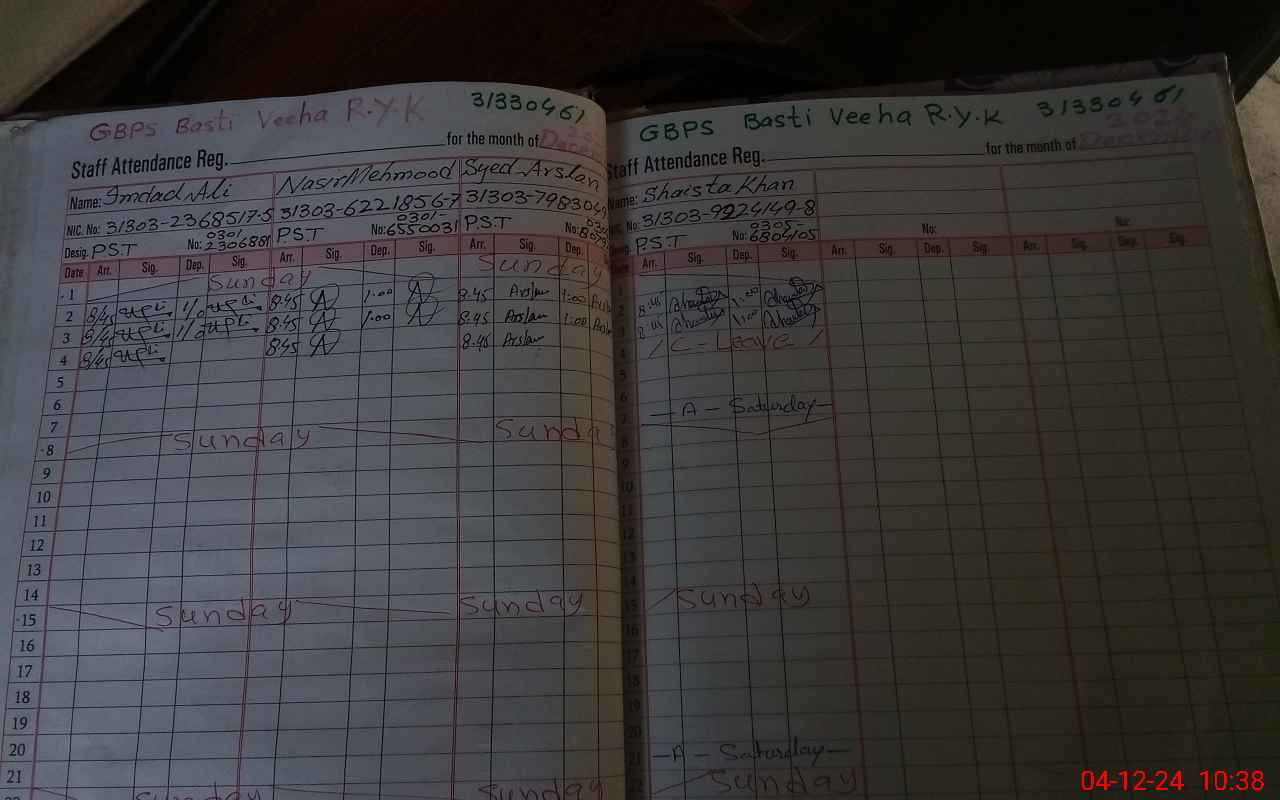 GBPS Basti Veeha R.Y.K 31330461
Staff Attendance Reg. for the month of
Name: Imdad Ali Nasir Mehmood Syed Arslan
NIC. No: 31303-2368517-5 31303-6221856-7 31303-798304
Desig. P.S.T No: 0301 2306881 P.S.T 0301- 6550031 P.S.T No:
Date Arr. Sig. Dep. Sig. Arr. Sig. Dep. Sig. Arr. Sig. Dep.
1 Sunday Sunday
2 8/45 1/0 8:45 1:00 8:45 Arslan 1:00
3 8/45 1/0 8:45 1:00 8:45 Arslan 1:00
4 8/45 8:45 8:45 Arslan
5
6
7
8 Sunday Sunda
9
10
11
12
13
14
15 Sunday Sunday
16
17
18
19
20
21
Sunday Sunday
GBPS Basti Veeha R.Y.K 31330461
Staff Attendance Reg. for the month of December
2024
Name: Shaista Khan
NIC. No: 31303-9924149-8
Desig. P.S.T No: 0305- 6804105 No: No:
Arr. Sig. Dep. Sig. Arr. Sig. Dep. Sig. Arr. Sig. Dep. Sig.
1
2 8:45 1:00
3 8:45 1:00
4 / C - Leave /
5
6
7 - A - Saturday -
8
9
10
11
12
13
14
15 Sunday
16
17
18
19
20
21 - A - Saturday -
22 Sunday
04-12-24 10:38